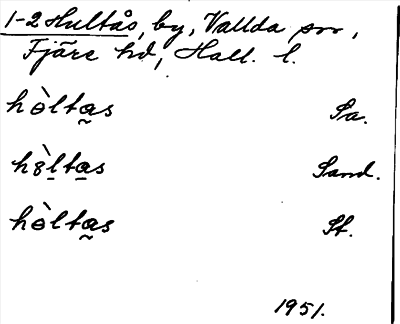 1-2 Hultås, by, Vallda sn,
Fjäre hd, Hall. l.
hòltas Sa.
hòltas Sand.
hòltas St.
1951.